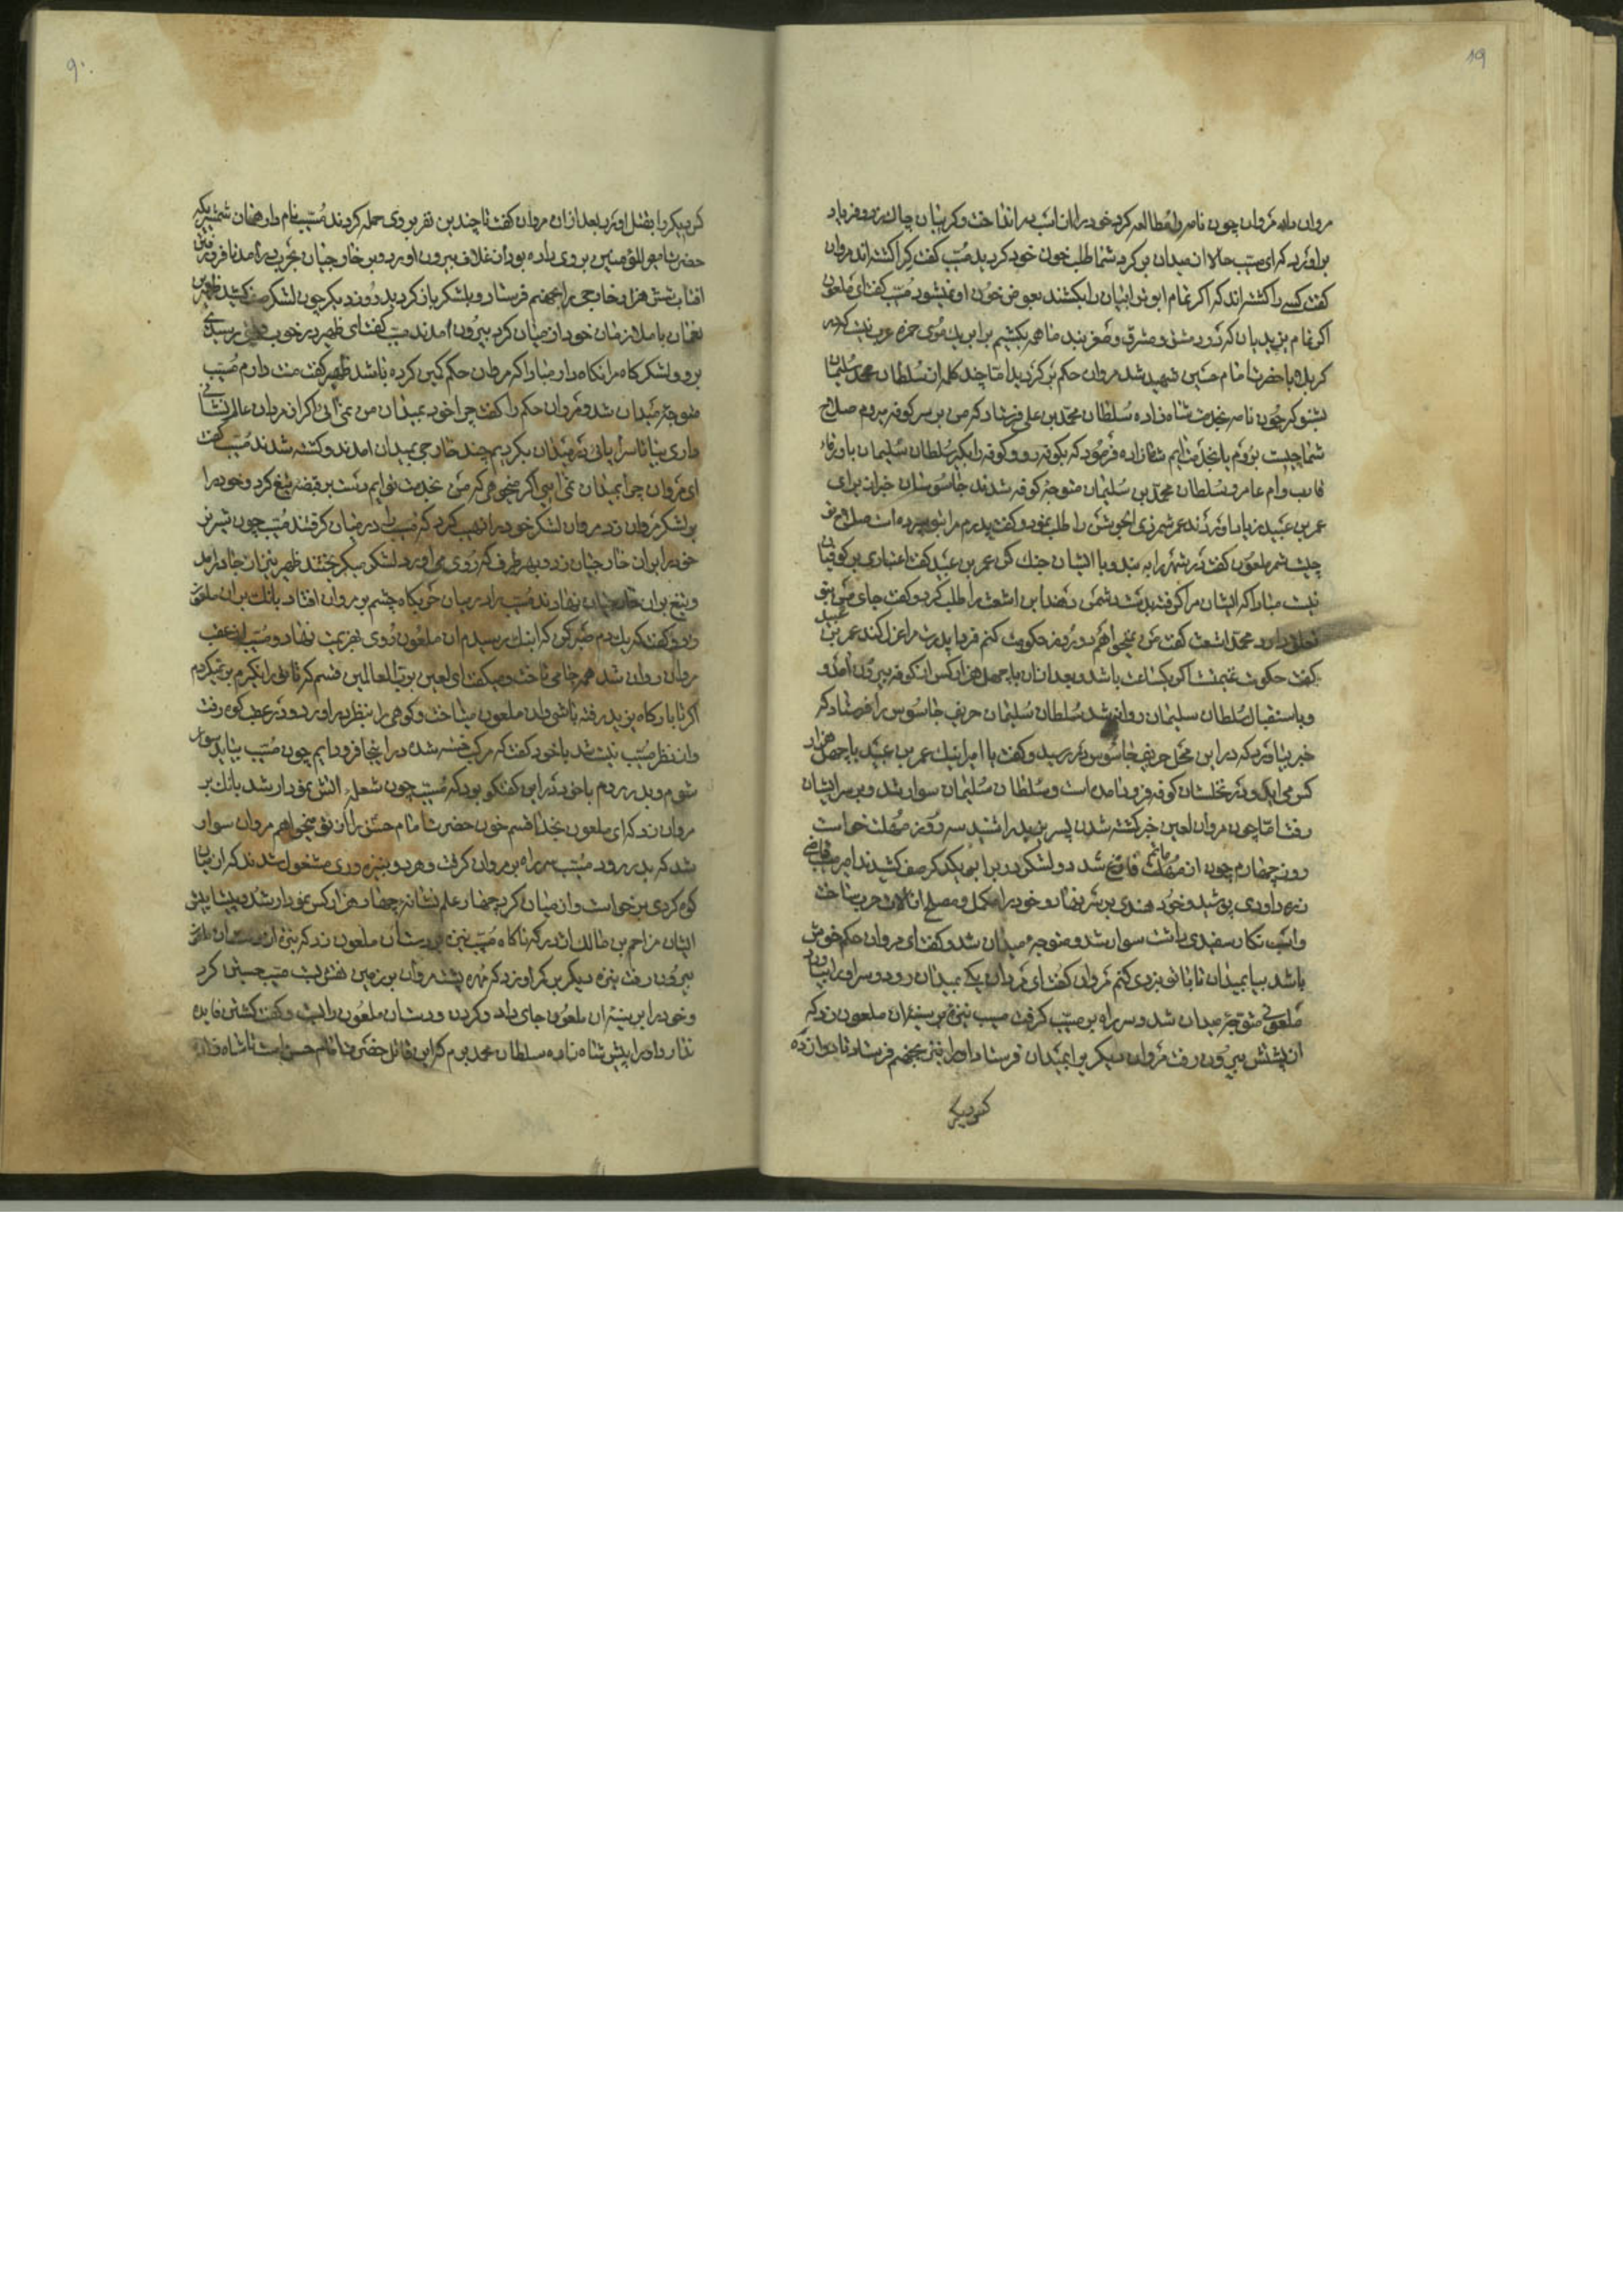 ۸۹
مروان داد مروان چون نامه را مطالعه کرد خود را از اسب در انداخت و گریبان چاک زد و فریاد
براورد که ای مسیب حالا از میدان بر کرد شما طلب خون خود کردید مسیب کفت کرا کشته اند مروان
کفت کسی را کشته اند که اکر تمام ابوترابیان را بکشند بعوض خون او نمیشود مسیب کفت ای ملعون
اکر تمام یزیدیان که در دمشق و مشرق و مغربند ما همه بکشیم برابر یک موی حمزه عرب نیست که در
کربلا با حضرت امام حسین شهید شد مروان حکم بر کردید اما چند کلمه از سلطان محمد سلیمان
بشنو که چون نامه بخدمت شاه زاده سلطان محمد بن علی فرستاد که من بر سر کوفه میروم صلاح
شما چیست بروم یا بخدمت ایم شاه زاده فرمود که بکوفه رو و کوفه را بکیر سلطان سلیمان با ورقاء
قارب وام عامر و سلطان محمد بن سلیمان متوجه کوفه شدند جاسوسان خبر از برای
عمر بن عبید زیاد اوردند عمر شمر ذی الجوشن را طلب نمود و کفت پدرم مرا سپرده است صلاح تو
چیست شمر ملعون کفت در شهر را ببند و با ایشان جنک کن عمر بن عبید کفت اعتباری بر کوفیان
نیست مبادا که ایشان مرا کرفته بدست دشمن دهند ابن اشعث را طلب کرد و کفت جای من بتو
تعلق دارد محمد اشعث کفت من میخواهم دو روز حکومت کنم فردا پدرت مرا عزل کند عمر بن عبید
کفت حکومت غنیمت اکر یکساعت باشد و بعد از ان با چهل هزار کس از کوفه بیرون امد و
و باستقبال سلطان سلیمان روانه شد سلطان سلیمان حریف جاسوس را فرستاد که
خبر بیاورید که در این محل حریف جاسوس در رسید و کفت یا امیر اینک عمر بن عبید با چهل هزار
کس می اید و در نخلستان کوفه فرود امده است و سلطان سلیمان سوار شد و بر سر ایشان
رفت اما چون مروان لعین خبر کشته شدن پسر یزید را شنید سه روز مهلت خواست
روز چهارم چون از مهلت ماتم فارغ شد دو لشکر در برابر یکدکر صف کشیدند امیر مسیب قاضی
زره داودی پوشید و خود هندی بر سر نهاد و خود را مکمل و مسلح از الات حرب ساخت
و اسب تکاور سفیدی داشت سوار شد و متوجه میدان شد و کفت ای مروان حکم خوش
باشد بیا بمیدان تا با تو نبردی کنم مروان کفت ای مردان یکی بمیدان رود و سر او را بیاورد
ملعونی متوجه میدان شد و سر راه بر مسیب کرفت مسیب نیزه بر سینه ان ملعون زد که
از پشتش بیرون رفت مروان دیکریرا بمیدان فرستاد او را نیز بجهنم فرستاد تا دوازده
کس دیکر
۹۰
کس دیکر را بقتل اورد بعد از ان مروان کفت تا چندین نفر بر وی حمله کردند مسیب نام دار همان شمشیریکه
حضرت امیرالمؤمنین بر وی داده بود از غلاف بیرون اورد و بر خارجیان بحرب در امد تا فرو رفتن
افتاب شش هزار خارجی را بجهنم فرستاد و بلشکر باز کردید و روز دیکر چون لشکر صف کشید ظهیر بن
نعمان با ملازمان خود از میان کرد بیرون امدند مسیب کفت ای ظهیر در خوب وقتی رسیدی
برو و لشکرکاه مرا نکاه دار مبادا که مروان حکم کمین کرده باشد ظهیر کفت منت دارم مسیب
متوجه میدان شد و مروان حکم را کفت چرا خود بمیدان من نمی ائی اکر از مردان عالم نشانی
داری بیا تا سر اپائی در میدان بکردیم چند خارجی بمیدان امدند و کشته شدند مسیب کفت
ای مروان چرا بمیدان نمی ایی اکر میخواهی که من بخدمت تو ایم دست بر قبضه تیغ کرد و خود را
بر لشکر مروان زد مروان لشکر خود را نهیب کرد که مسیب را در میان کرفتند مسیب چون شیر نر
خود را بر ان خارجیان زد و بهر طرف که روی می اورد لشکر میکریختند ظهیر نیز از جا در امد
و تیغ بر ان خارجیان نهادند مسیب را در میان حربکاه چشم بر مروان افتاد بانک بر ان ملعون
زد و کفت که یکدم صبر کن که اینک رسیدم ان ملعون روی بهزیمت نهاد و مسیب از عقب
مروان روان شد همه جا می تاخت و میکفت ای لعین برب العالمین قسم که تا تو را نکیرم بر نمیکردم
اکر تا بارکاه یزید رفته باشی و ان ملعون میتاخت و کوهی را بنظر در اورد و در عقب کوه رفت
و از نظر مسیب نیست شد با خود کفت که مرکب خسته شده در اینجا فرود ایم چون مسیب بیاید سوار
شوم و بدر روم با خود در این کفتکو بود که مسیب چون شعله اتش نمودار شد بانک بر
مروان زد که ای ملعون بخدا قسم خون حضرت امام حسین را از تو میخواهم مروان سوار
شد که بدر رود مسیب سر راه بر مروان کرفت و هر دو بنیزه وری مشغول شدند که از میان
کوه کردی بر خواست و از میان کرد چهار علم نشانه چهار هزار کس نمودار شد و پیشاپیش
ایشان مزاحم بن مالک اژدر که ناکاه مسیب نیزه بر دست ان ملعون زد که نیزه از دست ان ملعون
بیرون رفت نیزه دیکر بر کمر او زد که مهره پشت مروان بر زمین نقش بست مسیب جستن کرد
و خود را بر سینه ان ملعون جای داد و کردن و دست ان ملعون را بست و کفت کشتن فایده
ندارد او را پیش شاه زاده سلطان محمد برم که این قاتل حضرت امام حسین است تا شاه زاده